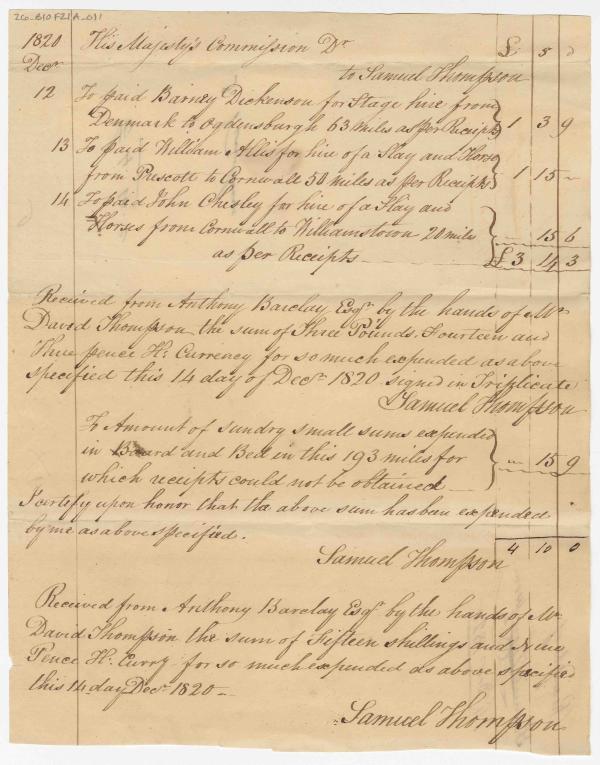 26_B10F21A_011
1820 His Majesty's Commission Dr £ s d
Decr to Samuel Thompson
12 To paid Barney Dickenson for Stage hire from
Denmark to Ogdensburgh 63 miles as per Receipt 1 3 9
13 To paid William Allis for hire of a Slay and Horse
from Prescott to Cornwall 50 miles as per Receipt 1 15 –
14 To paid John Chesley for hire of a Slay and
Horses from Cornwall to Williamstown 20 miles – 15 6
as per Receipts £3 14 3
Received from Anthony Barclay Esqr by the hands of Mr
David Thompson the sum of Three Pounds, Fourteen and
Three pence Hx Currency for so much expended as above
specified this 14 day of Decr 1820 signed in Triplicate
Samuel Thompson
To Amount of sundry small sums expended
in Board and Bed in this 193 miles for – 15 9
which receipts could not be obtained
I certify upon honor that the above sum has been expended
by me as above specified.
4 10 0
Samuel Thompson
Received from Anthony Barclay Esqr by the hands of Mr
David Thompson the sum of Fifteen shillings and Nine
Pence Hx Curry for so much expended as above specified
this 14 day Decr 1820 –
Samuel Thompson